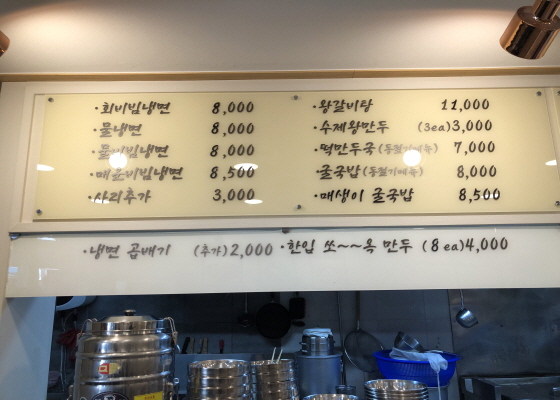 ·회비빔냉면 8,000
·물냉면 8,000
·물비빔냉면 8,000
·매운비빔냉면 8,500
·사리추가 3,000
·왕갈비탕 11,000
·수제왕만두 (3ea)3,000
·떡만두국(동절기메뉴) 7,000
·굴국밥(동절기메뉴) 8,000
·매생이 굴국밥 8,500
·냉면 곱배기 (추가)2,000 ·한입 쏘~~옥 만두 (8 ea)4,000